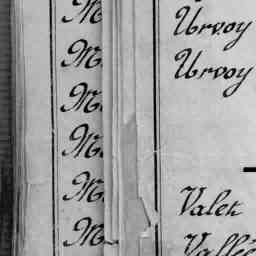 M. Urvoy
M. Urvoy
M.
M.
M. Valet
M. Vallé